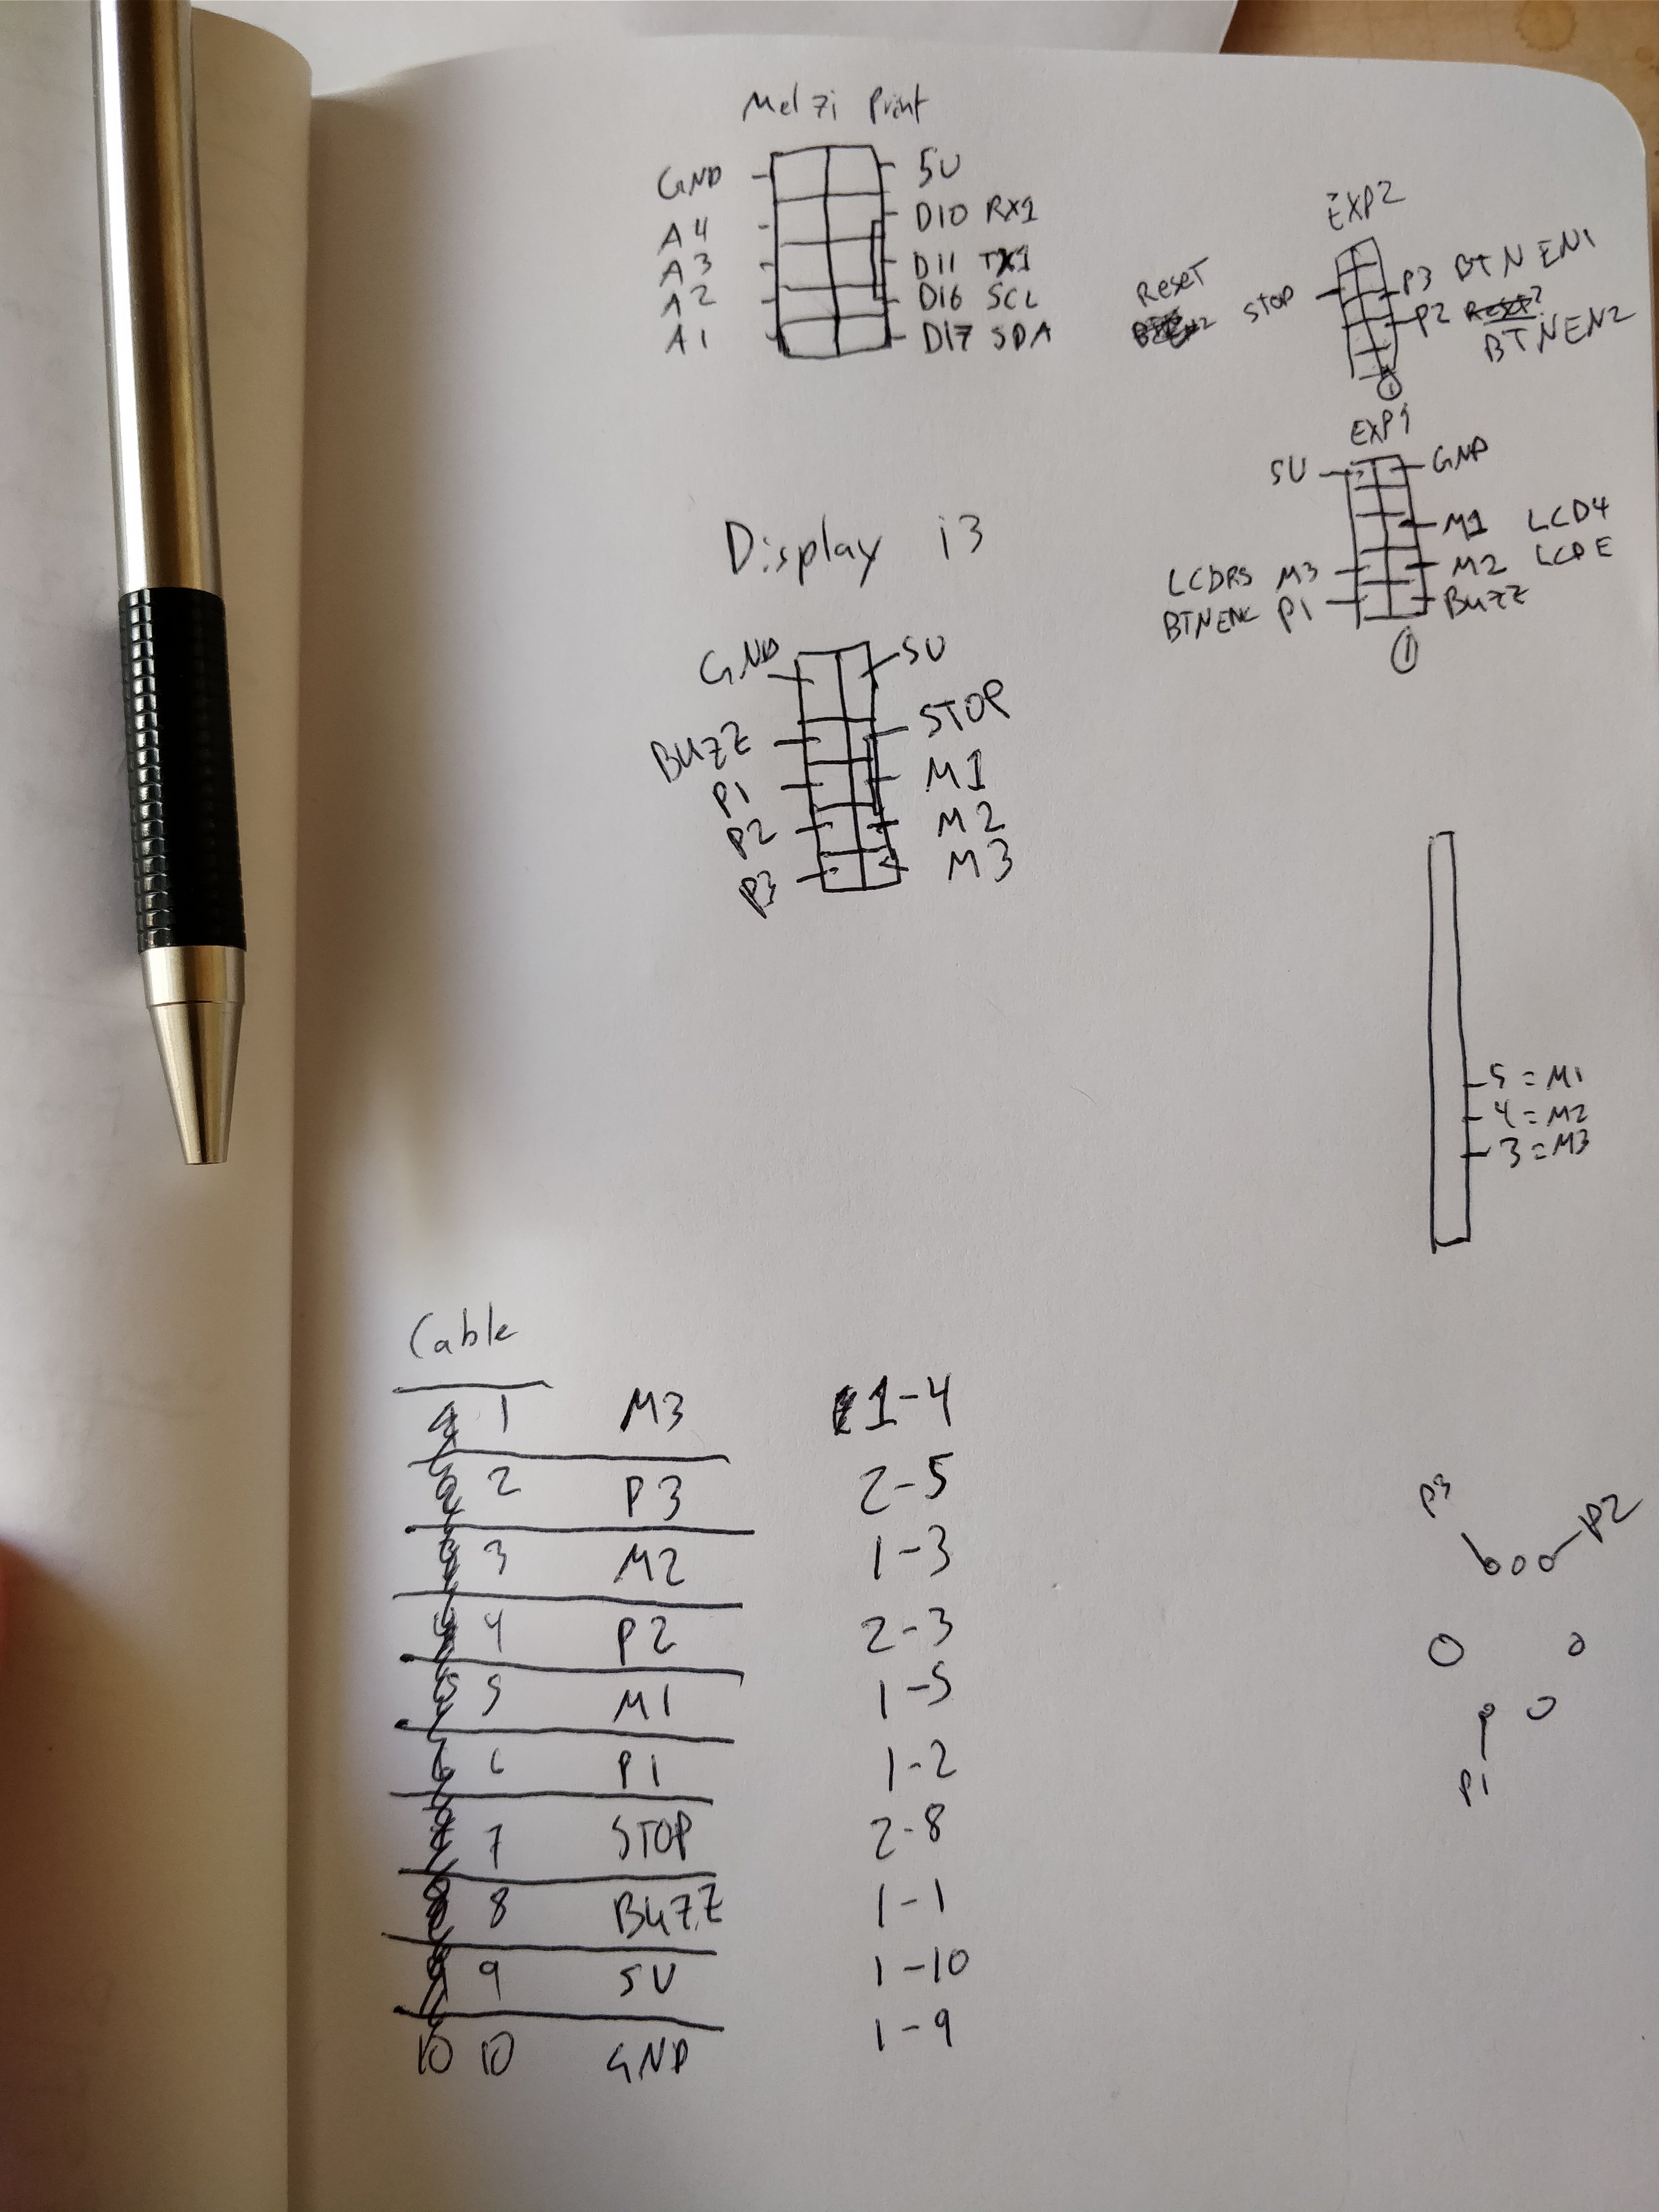 Melzi Print
GND 5V
A4 D10 RX1
A3 D11 TX1
A2 D16 SCL
A1 D17 SDA
EXP2
Reset STOP P3 BTN EN1
P2 BTNEN2
1
EXP1
5V GND
M1 LCD4
LCDRS M3 M2 LCDE
BTNENC P1 BUZZ
1
Display i3
GND 5V
BUZZ STOP
P1 M1
P2 M2
P3 M3
5 = M1
4 = M2
3 = M3
Cable
1 M3 1-4
2 P3 2-5
3 M2 1-3
4 P2 2-3
5 M1 1-5
6 P1 1-2
7 STOP 2-8
8 BUZZ 1-1
9 5V 1-10
10 10 GND 1-9
P3 P2
P1